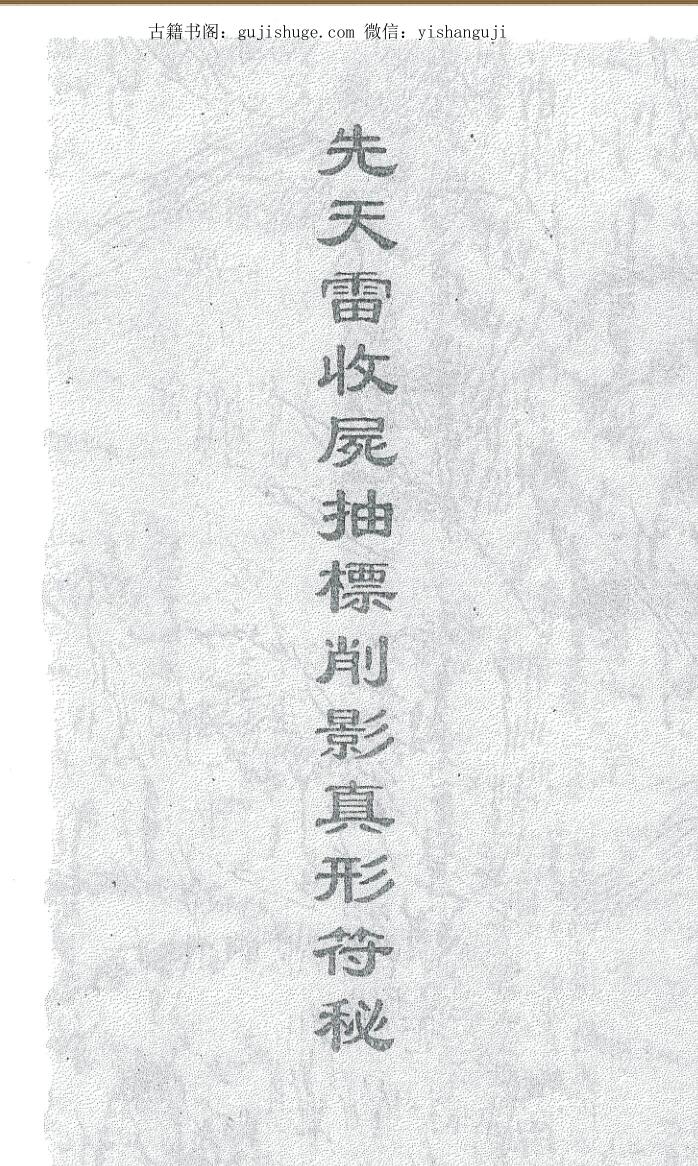 古籍书阁：gujishuge.com 微信：yishanguji
先天雷收屍抽標削影真形符秘